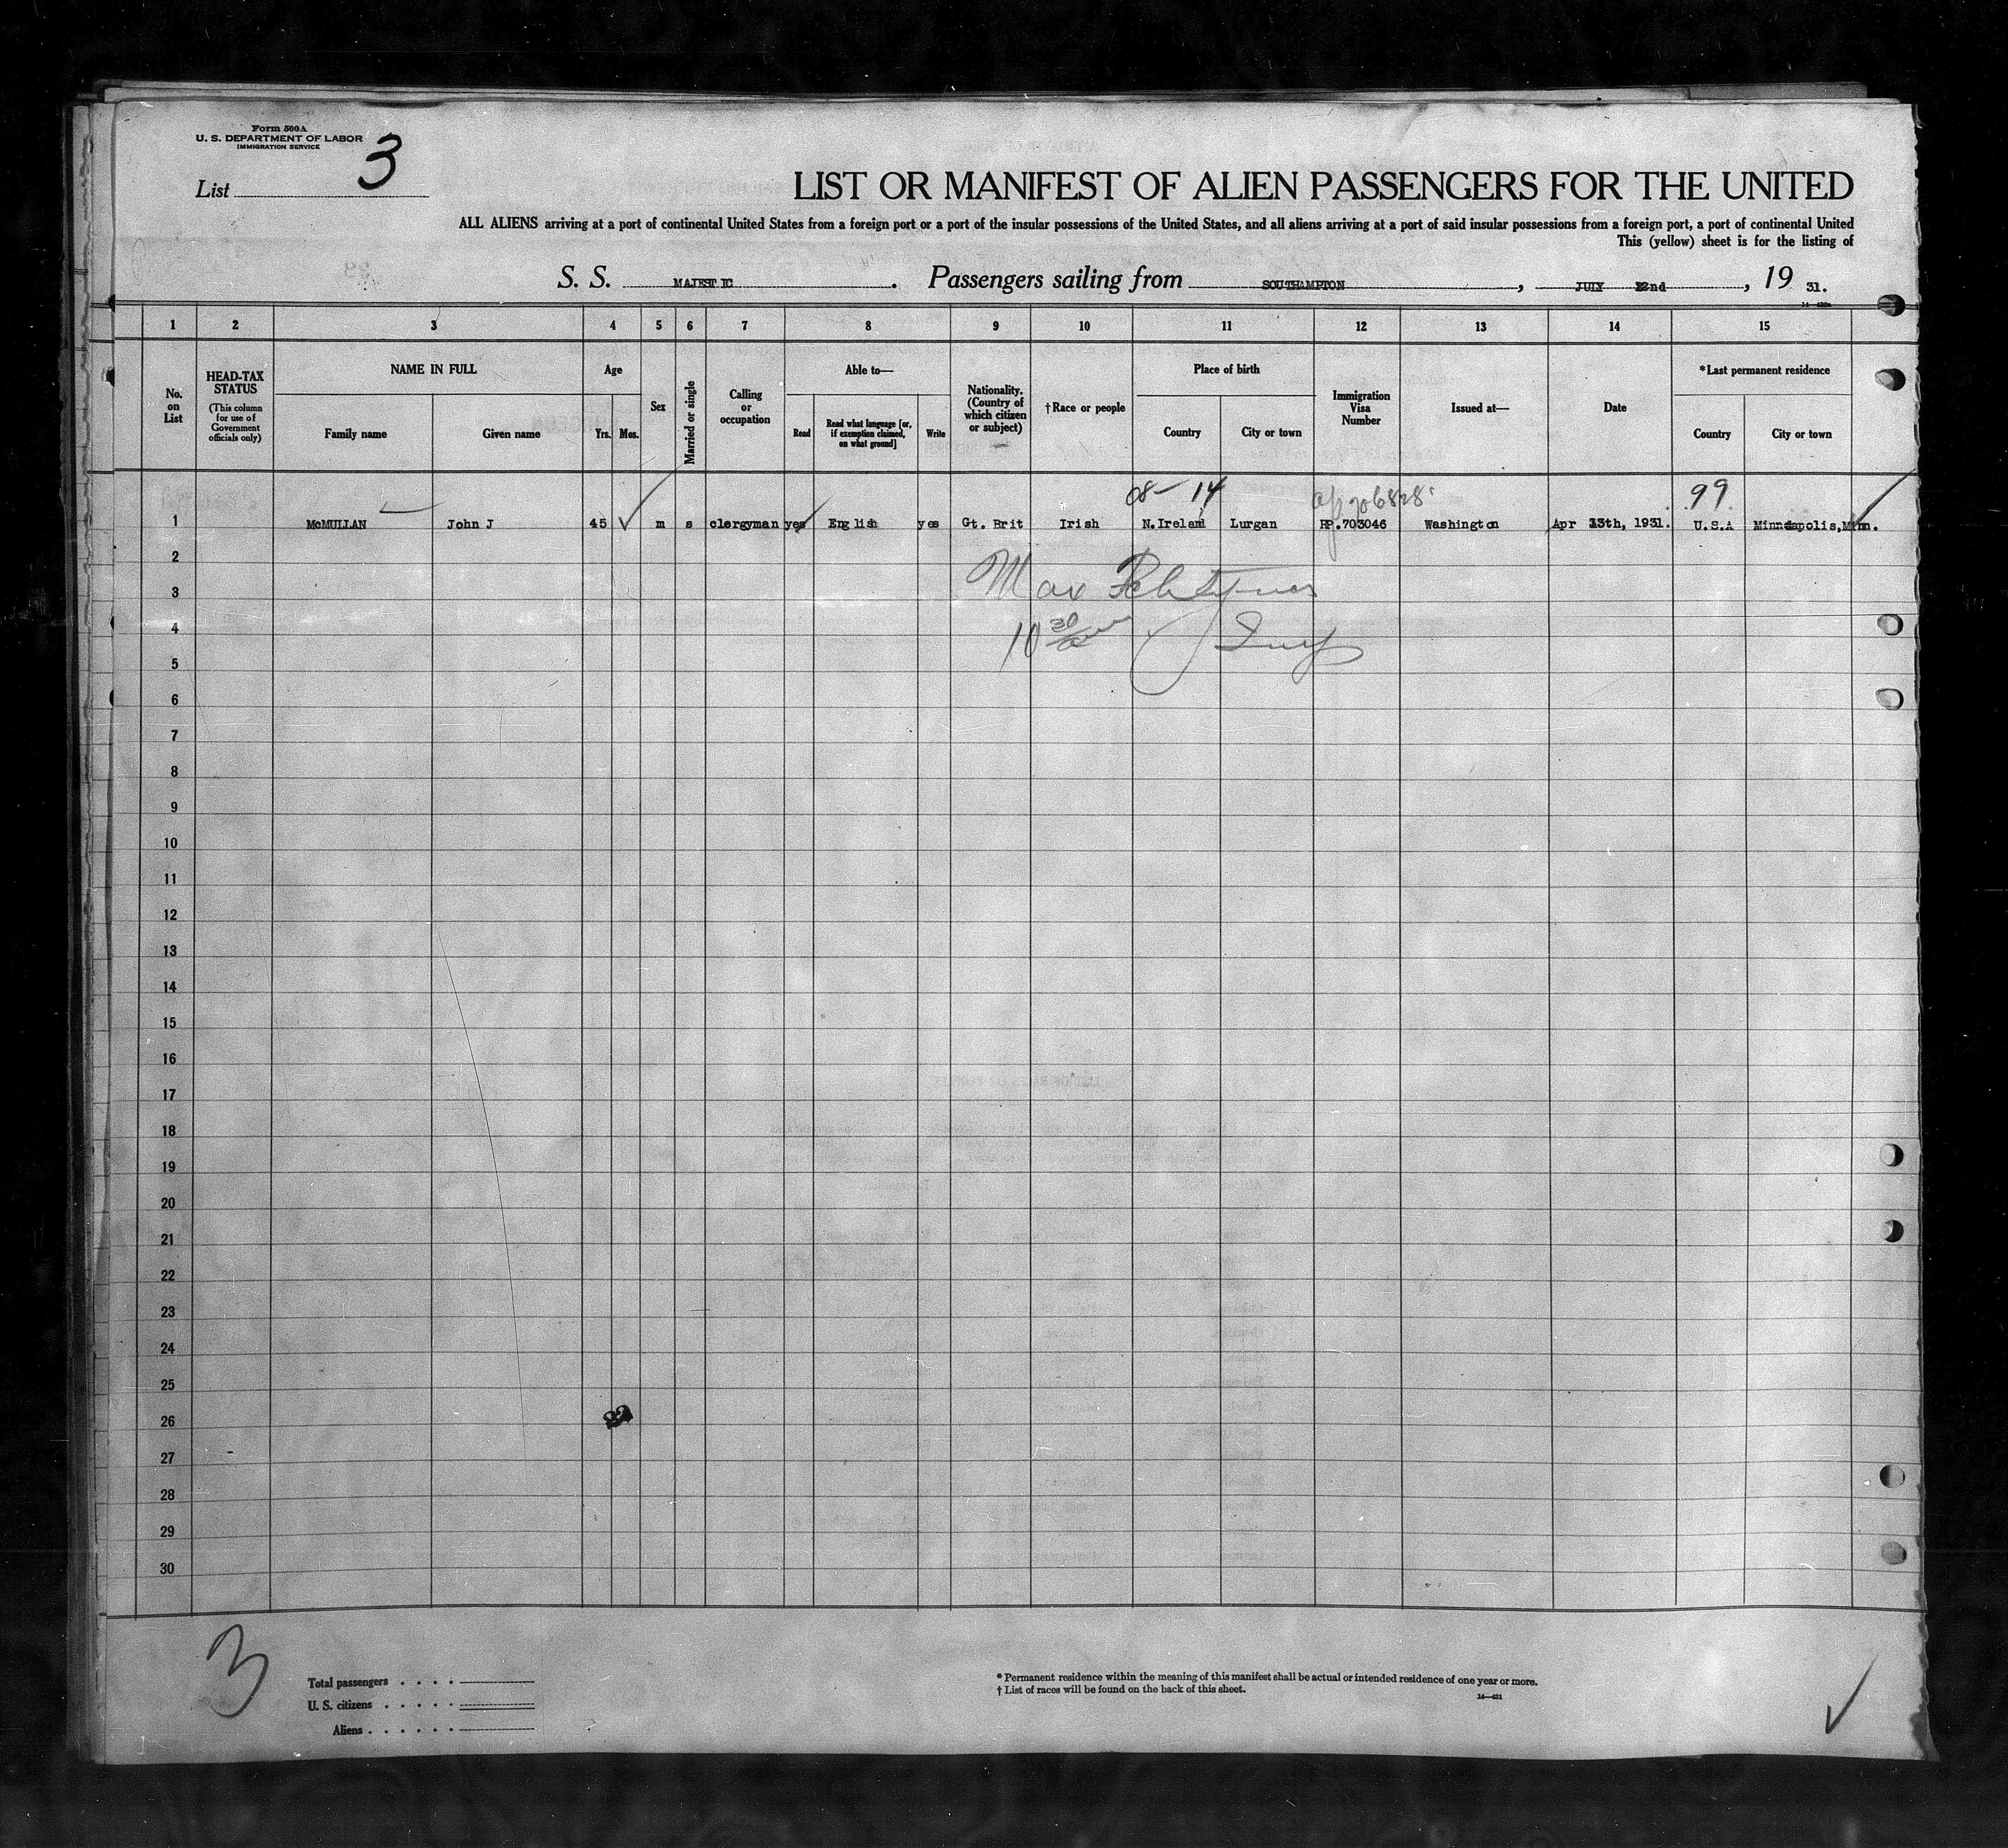 Form 500A
U. S. DEPARTMENT OF LABOR
IMMIGRATION SERVICE
List 3
LIST OR MANIFEST OF ALIEN PASSENGERS FOR THE UNITED
ALL ALIENS arriving at a port of continental United States from a foreign port or a port of the insular possessions of the United States, and all aliens arriving at a port of said insular possessions from a foreign port, a port of continental United
This (yellow) sheet is for the listing of
S. S. MAJESTIC. Passengers sailing from SOUTHAMPTON, JULY 22nd, 19 31.
1 2 3 4 5 6 7 8 9 10 11 12 13 14 15
No. on List
HEAD-TAX STATUS (This column for use of Government officials only)
NAME IN FULL
Family name
Given name
Age
Yrs. Mos.
Sex
Married or single
Calling or occupation
Able to—
Read
Read what language [or, if exemption claimed, on what ground]
Write
Nationality. (Country of which citizen or subject)
†Race or people
Place of birth
Country
City or town
Immigration Visa Number
Issued at—
Date
*Last permanent residence
Country
City or town
08— 14
99
1 McMULLAN John J 45 m s clergyman yes English yes Gt. Brit Irish N.Ireland Lurgan RP.703046 Washington Apr 13th, 1931. U.S.A Minneapolis,Minn.
2
Max
3
10 30
4
5
6
7
8
9
10
11
12
13
14
15
16
17
18
19
20
21
22
23
24
25
26
27
28
29
30
3
Total passengers . . . .
U. S. citizens . . . . .
Aliens . . . . . .
* Permanent residence within the meaning of this manifest shall be actual or intended residence of one year or more.
† List of races will be found on the back of this sheet.